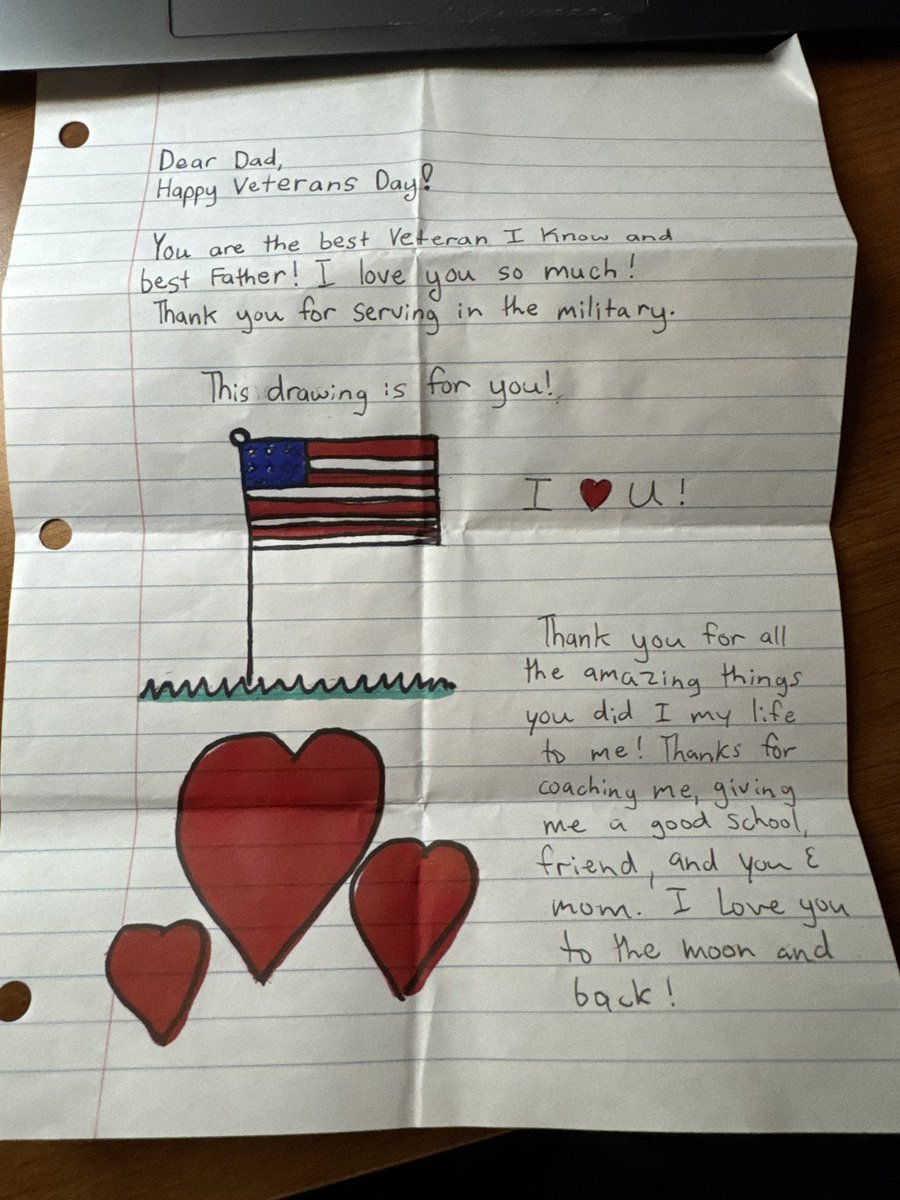 Dear Dad,
Happy Veterans Day!
You are the best Veteran I know and
best Father! I love you so much!
Thank you for serving in the military.
This drawing is for you!
I ♥ U!
Thank you for all
the amazing things
you did I my life
to me! Thanks for
coaching me, giving
me a good school,
friend, and you &
mom. I Love you
to the moon and
back!